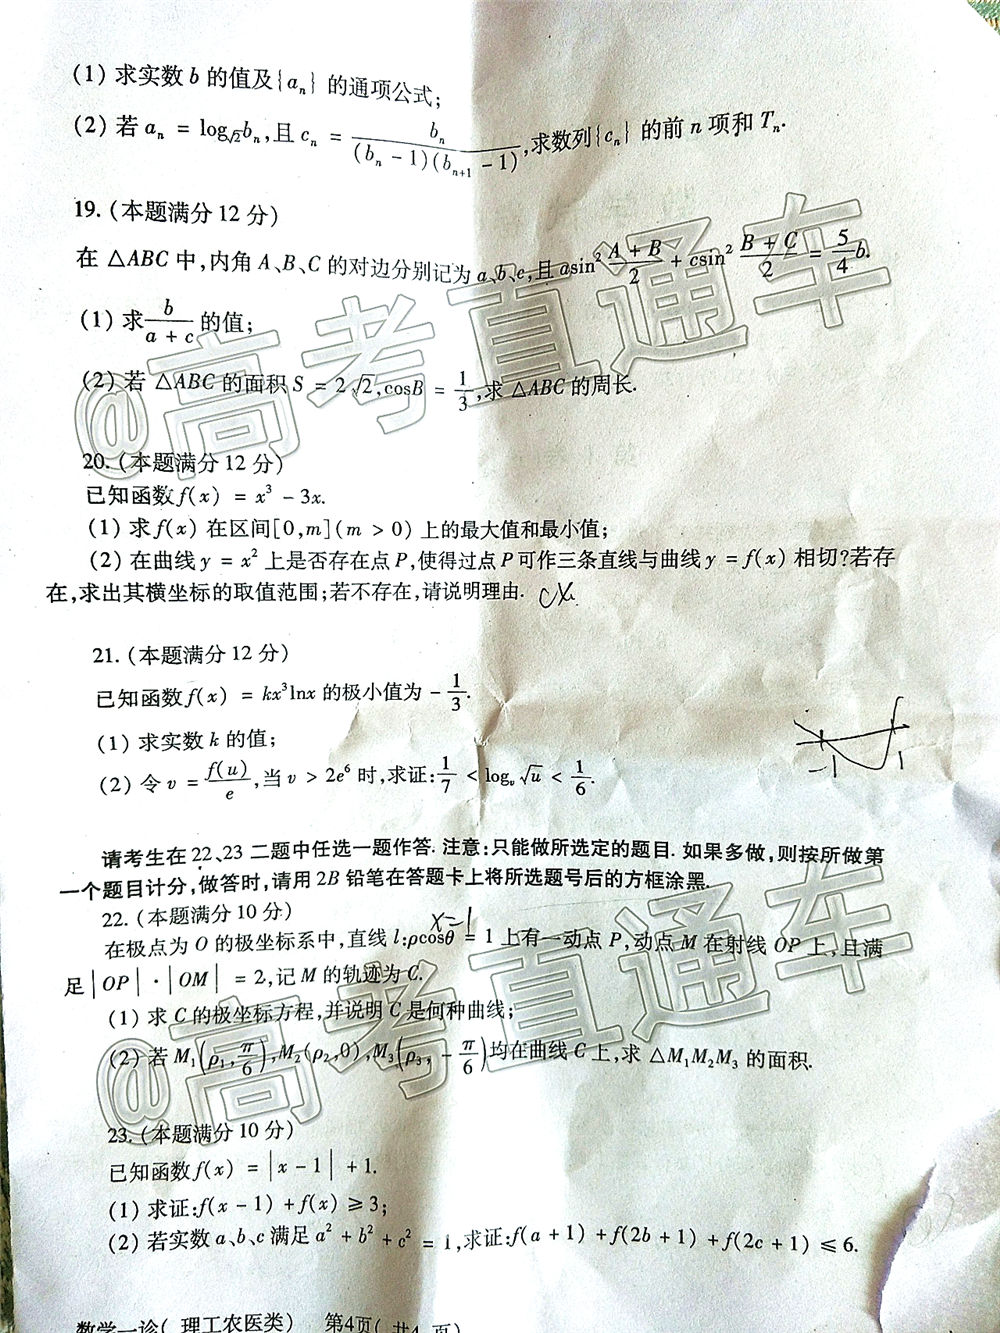 (1) 求实数 b 的值及{aₙ} 的通项公式;
(2) 若 aₙ = log_{√2}bₙ,且 cₙ = bₙ/((bₙ - 1)(bₙ₊₁ - 1)),求数列{cₙ} 的前 n 项和 Tₙ.
19. (本题满分 12 分)
在 △ABC 中,内角 A、B、C 的对边分别记为 a、b、c,且 asin²(A + B)/2 + csin²(B + C)/2 = 5/4 b.
(1) 求 b/(a + c) 的值;
(2) 若 △ABC 的面积 S = 2√2,cosB = 1/3,求 △ABC 的周长.
@高考直通车
20. (本题满分 12 分)
已知函数 f(x) = x³ - 3x.
(1) 求 f(x) 在区间[0,m](m > 0) 上的最大值和最小值;
(2) 在曲线 y = x² 上是否存在点 P,使得过点 P 可作三条直线与曲线 y = f(x) 相切?若存
在,求出其横坐标的取值范围;若不存在,请说明理由.
21. (本题满分 12 分)
已知函数 f(x) = kx³lnx 的极小值为 - 1/3.
(1) 求实数 k 的值;
(2) 令 v = f(u)/e,当 v > 2e⁶ 时,求证:1/7 < logᵥ√u < 1/6.
-1 1
请考生在 22、23 二题中任选一题作答. 注意:只能做所选定的题目. 如果多做,则按所做第
一个题目计分,做答时,请用 2B 铅笔在答题卡上将所选题号后的方框涂黑.
22. (本题满分 10 分)
x=1
在极点为 O 的极坐标系中,直线 l:ρcosθ = 1 上有一动点 P,动点 M 在射线 OP 上,且满
足|OP|·|OM| = 2,记 M 的轨迹为 C.
(1) 求 C 的极坐标方程,并说明 C 是何种曲线;
(2) 若 M₁(ρ₁,π/6),M₂(ρ₂,0),M₃(ρ₃,-π/6)均在曲线 C 上,求 △M₁M₂M₃ 的面积.
@高考直通车
23. (本题满分 10 分)
已知函数 f(x) = |x - 1| + 1.
(1) 求证:f(x - 1) + f(x) ≥ 3;
(2) 若实数 a、b、c 满足 a² + b² + c² = 1,求证:f(a + 1) + f(2b + 1) + f(2c + 1) ≤ 6.
数学一诊( 理工农医类) 第4页( 共4 页)